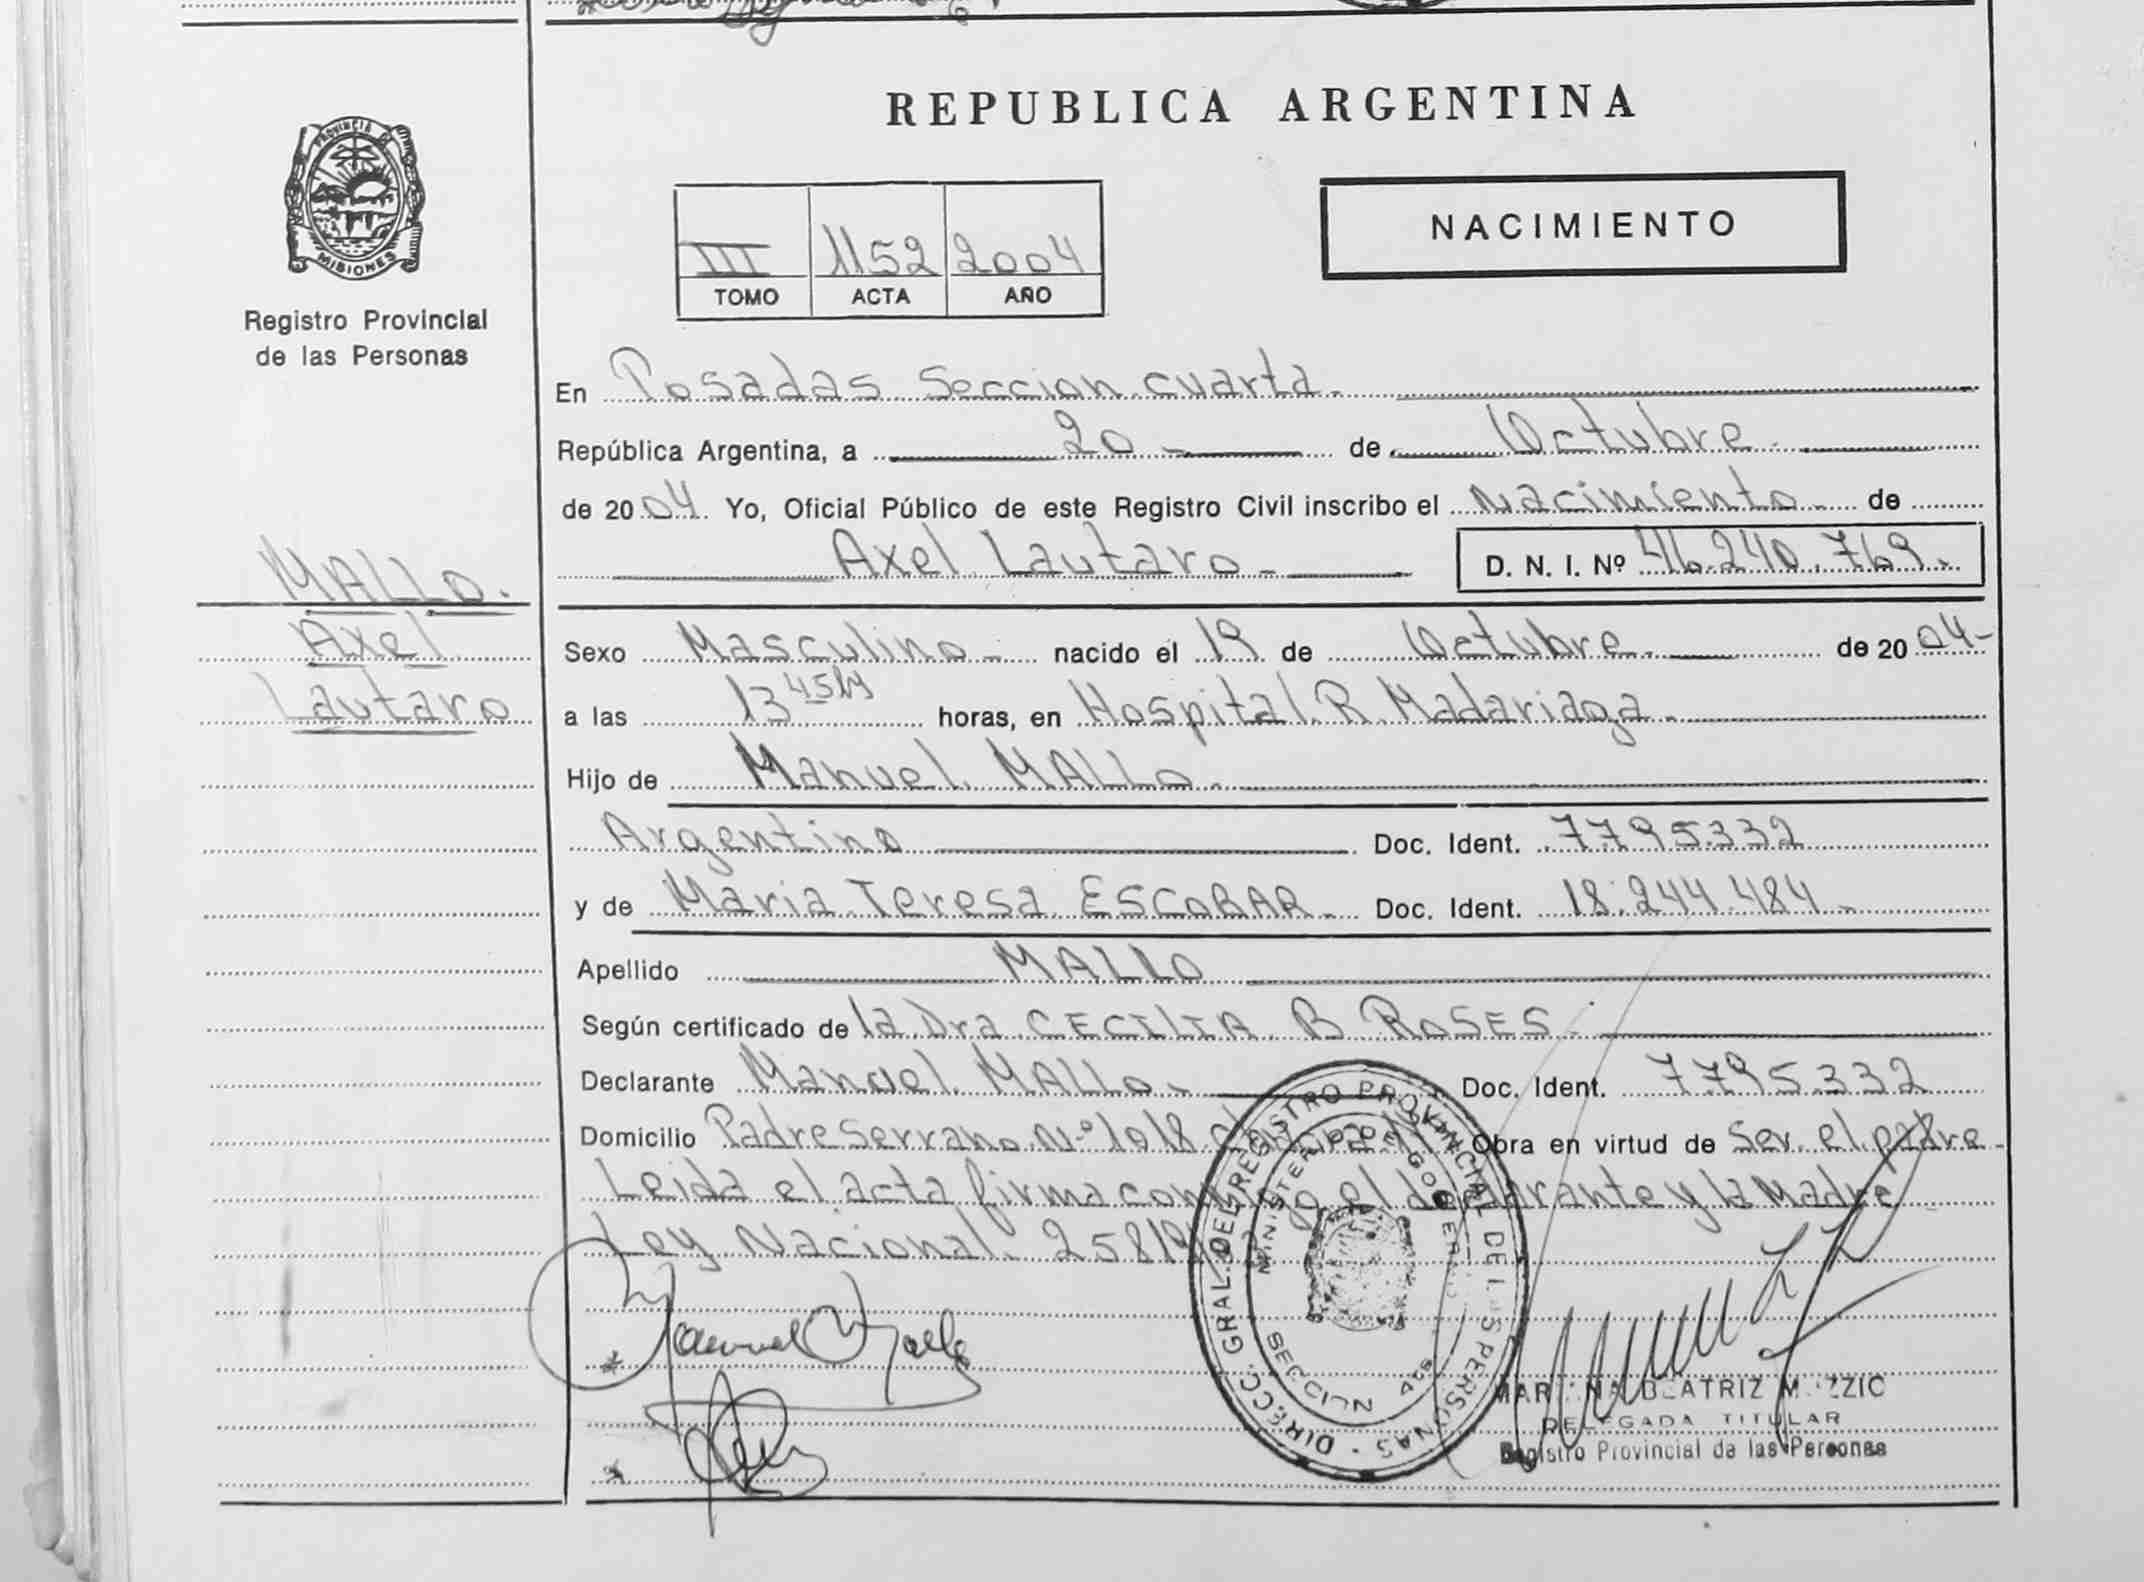 REPUBLICA ARGENTINA
PROVINCIA DE MISIONES
Registro Provincial
de las Personas
III 1152 2004
TOMO ACTA AÑO
NACIMIENTO
En Posadas Seccion cuarta.
República Argentina, a 20 de Octubre
de 2004 Yo, Oficial Público de este Registro Civil inscribo el Nacimiento de
Axel Lautaro D. N. I. Nº 46.240.769.
MALLO.
Axel
Lautaro
Sexo Masculino nacido el 19 de Octubre de 2004
a las 13 45 hs horas, en Hospital R. Madariaga
Hijo de Manuel MALLO
Argentino Doc. Ident. 7.795.332
y de Maria Teresa ESCOBAR Doc. Ident. 18.244.484
Apellido MALLO
Según certificado de la Dra CECILIA B ROSES
Declarante Manuel MALLO Doc. Ident. 7.795.332
Domicilio Padre Serrano Nº 1018 Obra en virtud de Ser el padre
Leida el acta firma el declarante y la Madre
Ley Nacional 25819
Manuel Mallo
DIRECC. GRAL. DEL REGISTRO PROVINCIAL DE LAS PERSONAS
MINISTERIO DE GOBIERNO
SECCION 4ta
BEATRIZ
DELEGADA TITULAR
Registro Provincial de las Personas